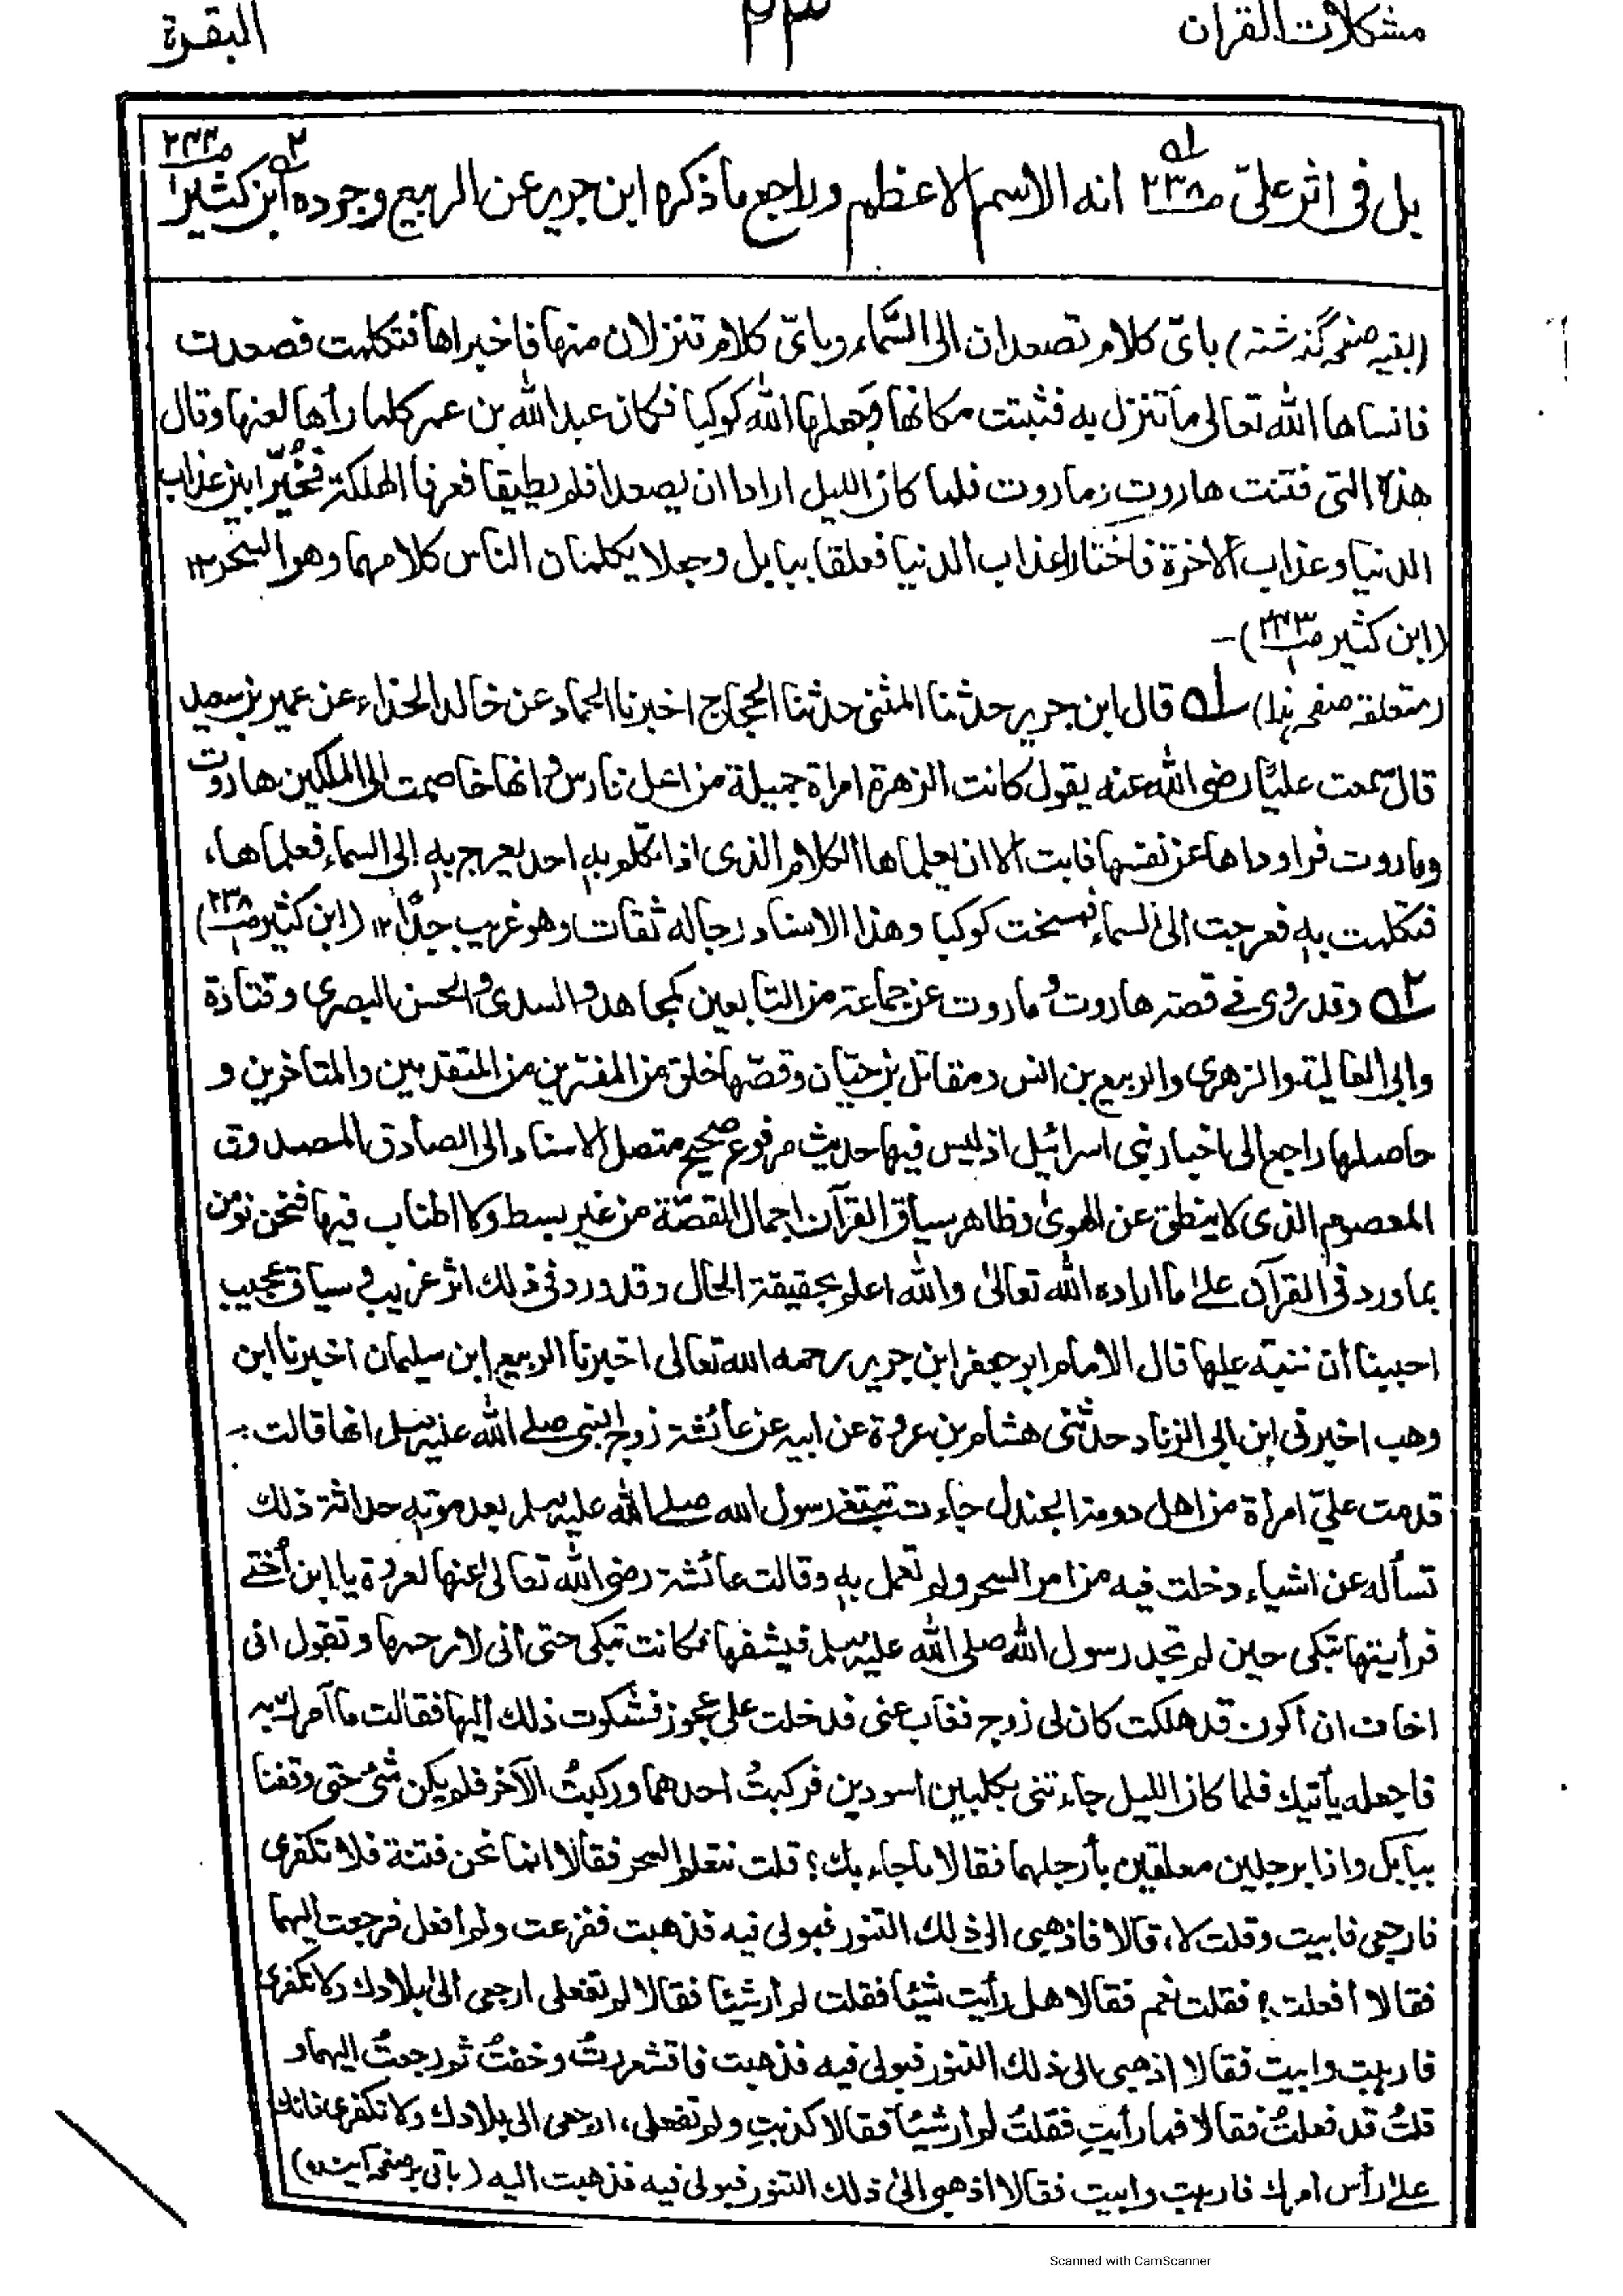 مشكلات القران
٢٣
البقرة
بل في اثر عليّ ص٢٣٨ انه الاسم الاعظم وراجع ما ذكره ابن جرير عن الربيع وجوده ابن كثير ص٢٤٤
(بقیہ صفحہ گذشتہ) باىّ كلام تصعدان الى السّماء وباىّ كلام تنزلان منها فاخبراها فتكلمت فصعدت
فانساها الله تعالى ما تنزل به فثبتت مكانها وجعلها الله كوكبا فكان عبد الله بن عمر كلما رأها لعنها وقال
هذه التى فتنت هاروت وماروت فلما كان الليل ارادا ان يصعدا فلم يطيقا فعرفا الهلكة فخُيّرا بين عذاب
الدنيا وعذاب الاخرة فاختارا عذاب الدنيا فعلقا ببابل وجعلا يكلمان الناس كلامهما وهو السحر ١٢
(ابن كثير ص٢٤٣)-
(متعلقہ صفحہ ہذا) ١ه قال ابن جرير حدثنا المثنى حدثنا الحجاج اخبرنا الحماد عن خالد الحذاء عن عمير بن سعيد
قال سمعت عليًّا رضى الله عنه يقول كانت الزهرة امراة جميلة من اهل فارس وانها خاصمت الى الملكين هاروت
وماروت فراوداها عن نفسها فابت الا ان يعلماها الكلام الذى اذا تكلم به احد يعرج به إلى السماء فعلماها،
فتكلمت به فعرجت الى السماء فمسخت كوكبا وهذا الاسناد رجاله ثقات وهو غريب جدًّا ١٢ (ابن كثير ص٢٣٨)
٢ه وقد روى فى قصة هاروت وماروت عن جماعة من التابعين كمجاهد والسدى والحسن البصرى وقتادة
وابى العالية والزهرى والربيع بن انس ومقاتل بن حيّان وقصّها خلق من المفسرين من المتقدمين والمتاخرين و
حاصلها راجع الى اخبار بنى اسرائيل اذ ليس فيها حديث مرفوع صحيح متصل الاسناد الى الصادق المصدوق
المعصوم الذى لا ينطق عن الهوىٰ وظاهر سياق القرآن اجمال القصّة من غير بسط ولا اطناب فيها فنحن نؤمن
بما ورد فى القرآن علىٰ ما اراده الله تعالىٰ والله اعلم بحقيقة الحال وقد ورد فى ذلك اثر غريب فى سياق عجيب
احببنا أن ننبّه عليها قال الامام ابو جعفر ابن جرير رحمه الله تعالى اخبرنا الربيع ابن سليمان اخبرنا ابن
وهب اخبرنى ابن ابى الزناد حدثنى هشام بن عروة عن ابيه عن عائشة زوج النبى صلى الله عليه وسلم انها قالت:-
قدمت علىّ امرأة من اهل دومة الجندل جاءت تبتغى رسول الله صلى الله عليه وسلم بعد موته حداثة ذلك
تسأله عن اشياء دخلت فيه من امر السحر ولم تعمل به وقالت عائشة رضى الله تعالىٰ عنها لعروة يا ابن أختى
فرأيتها تبكى حين لم تجد رسول الله صلى الله عليه وسلم فيشفها فكانت تبكى حتى انى لارحمها وتقول انى
اخاف ان أكون قد هلكت كان لى زوج فغاب عنى فدخلت على عجوز فشكوت ذلك إليها فقالت ما آمرك به
فاجعله يأتيك فلما كان الليل جاءتنى بكلبين اسودين فركبتُ احدهما وركبتُ الآخر فلم يكن شئ حتى وقفنا
ببابل واذا برجلين معلقين بأرجلهما فقالا ما جاء بك؟ قلت نتعلم السحر فقالا انما نحن فتنة فلا تكفرى
فارجعى فابيت وقلت لا، قالا فاذهبى الى ذلك التنور فبولى فيه فذهبت ففزعت ولم افعل فرجعت إليهما
فقالا أفعلت؟ فقلت نعم فقالا هل رأيت شيئا فقلت لم ار شيئا فقالا لم تفعلى ارجعى الىٰ بلادك ولا تكفرى
فاربت وابيت فقالا اذهبى الى ذلك التنور فبولى فيه فذهبت فاقشعررتُ وخفتُ ثم رجعتُ إليهما و
قلتُ قد فعلتُ فقالا فما رأيتِ فقلتُ لم أر شيئا فقالا كذبتِ ولم تفعلى، ارجعى الى بلادك ولا تكفرى فانك
علىٰ رأس امرك فاربت وابيت فقالا اذهبى الىٰ ذلك التنور فبولى فيه فذهبت اليه (باقی بر صفحہ آیندہ)
Scanned with CamScanner